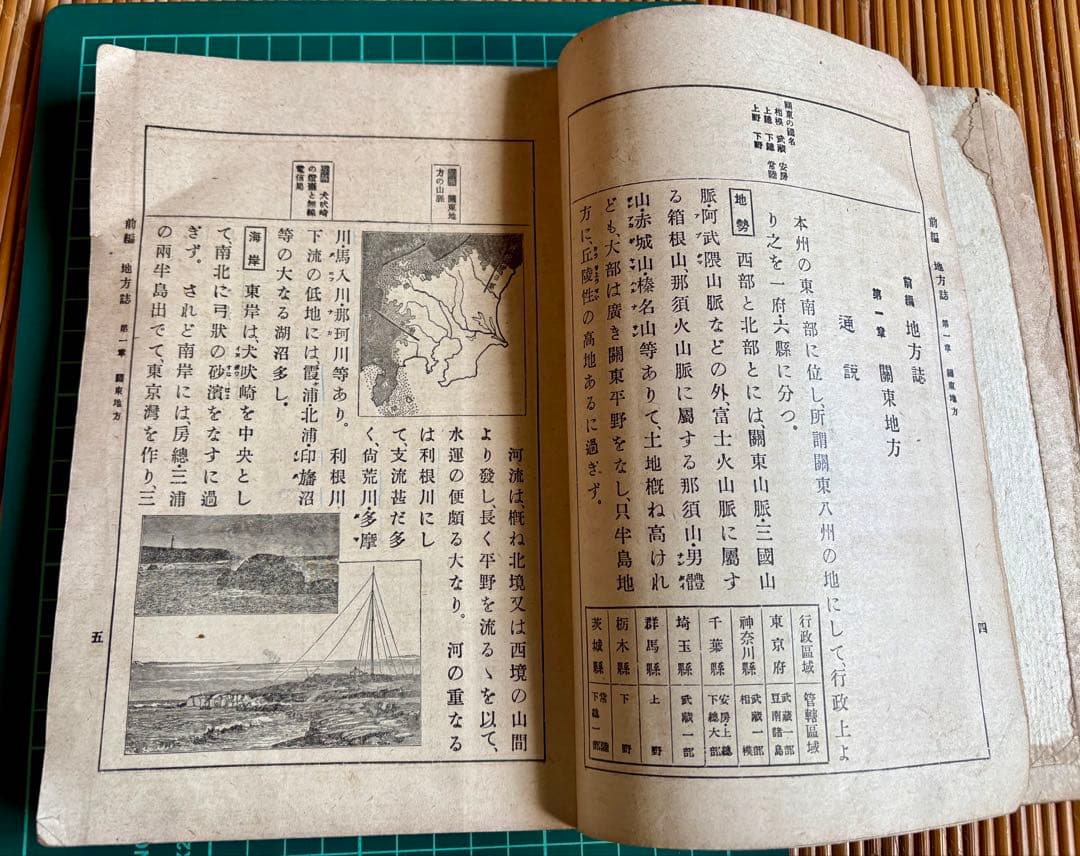 前編 地方誌 第一章 關東地方
四
關東の國名
相模 武藏 安房
上總 下總 常陸
上野 下野
前編 地方誌
第一章 關東地方
通說
本州の東南部に位し、所謂關東八州の地にして、行政上よ
り之を一府・六縣に分つ。
地勢 西部と北部とには、關東山脈・三國山
脈・阿武隈山脈などの外、富士火山脈に屬す
る箱根山、那須火山脈に屬する那須山・男體
山・赤城山・榛名山等ありて、土地概ね高けれ
ども、大部は廣き關東平野をなし、只半島地
方に、丘陵性の高地あるに過ぎず。
行政區域 管轄區域
東京府 武藏一部 豆南諸島
神奈川縣 武藏一部 相模
千葉縣 安房上總 下總大部
埼玉縣 武藏一部
群馬縣 上野
栃木縣 下野
茨城縣 常陸 下總一部
關東地
方の山脈
河流は、概ね北境又は西境の山間
より發し、長く平野を流るゝを以て、
水運の便頗る大なり。 河の重なる
は利根川にし
て、支流甚だ多
く、尙荒川・多摩
川・馬入川・那珂川等あり。 利根川
下流の低地には霞浦北浦・印旛沼
等の大なる湖沼多し。
犬吠崎
の燈臺と無線
電信局
海岸 東岸は、犬吠崎を中央とし
て、南北に弓狀の砂濱をなすに過
ぎず。 されど南岸には、房總・三浦
の兩半島出でて、東京灣を作り、三
前編 地方誌 第一章 關東地方
五